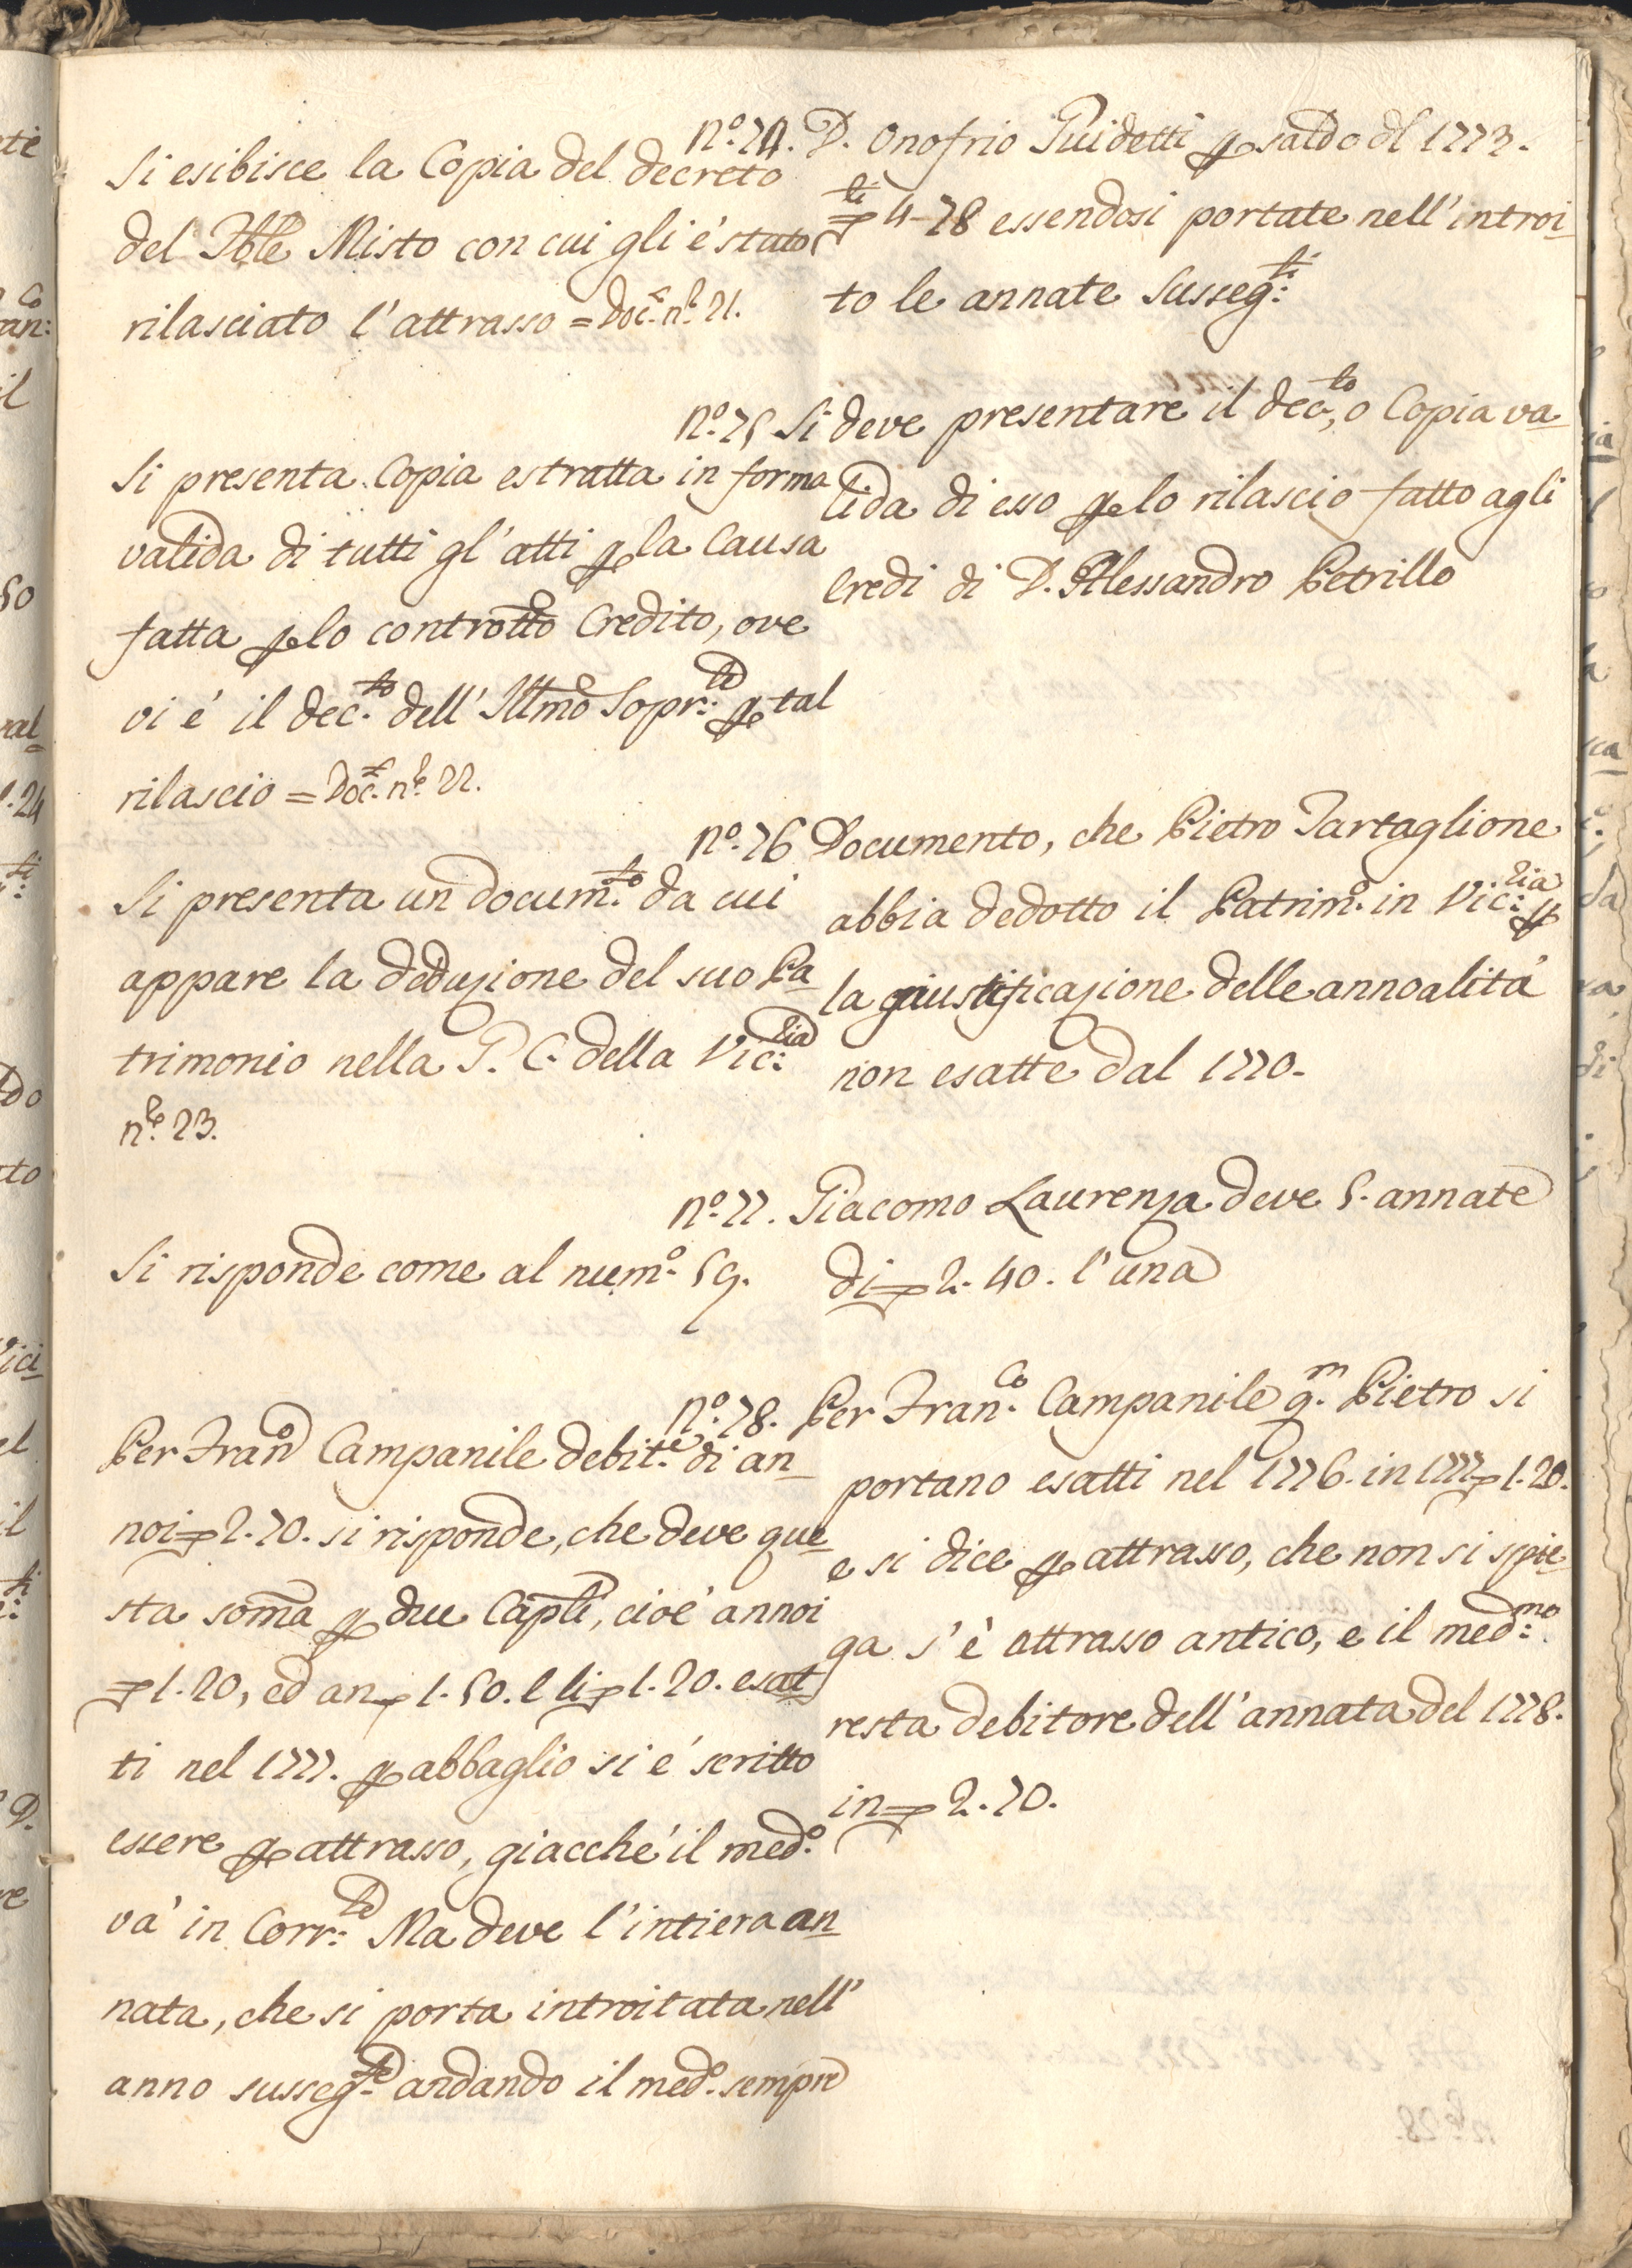 N.º 74. D. Onofrio Guidetti p saldo dl 1773.
ti 4-78 essendosi portate nell'introi-
to le annate Susseg:ti
Si esibisce la Copia del decreto
del Tble Misto con cui gli è stato
rilasciato l'attrasso = Doc.to n.º 21.
N.º 75 Si deve presentare il dec.to, o Copia va-
lida di esso p lo rilascio fatto agli
Eredi di D. Alessandro Petrillo
Si presenta Copia estratta in forma
valida di tutti gl'atti p la Causa
fatta p lo controtto Credito, ove
vi è il dec.to dell'Illmo Sopr:te p tal
rilascio = Doc.to n.º 22.
N.º 76 Documento, che Pietro Tartaglione
abbia dedotto il Patrim.º in Vic:ria p
la giustificazione delle annoalità
non esatte dal 1770.
Si presenta un docum.to da cui
appare la deduzione del suo Pa-
trimonio nella G. C. della Vic:ria
n.º 23.
N.º 77. Giacomo Laurenza deve 5. annate
di 2. 40. l'una
Si risponde come al num.º 59.
N.º 78. Per Fran.co Campanile q.m Pietro si
portano esatti nel 1776. in 1777 1.20.
e si dice p attrasso, che non si spie-
ga s'è attrasso antico, e il med:mo
resta debitore dell'annata del 1778.
in 2.70.
Per Franº Campanile debit.e di an-
noi 2.70. si risponde, che deve que-
sta soma p due Capli, cioè annoi
1.20, ed an 1.50. E li 1.20. esat-
ti nel 1777. p abbaglio si è scritto
essere p attrasso, giacchè il med.º
và in Corr:te Ma deve l'intiera an-
nata, che si porta introitata nell'
anno susseg.te andando il med.º sempre